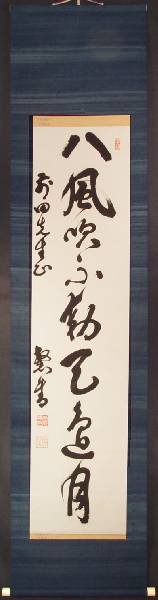 八風吹不動天邊月
前田先生正